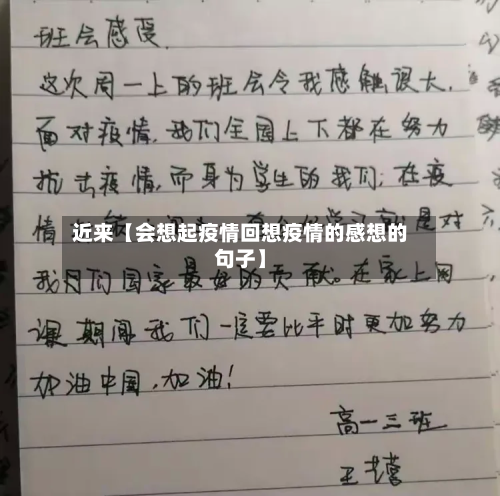 班会感受.
这次周一上的班会令我感触很大,
面对疫情,我们全国上下都在努力
抗击疫情,而身为学生的我们,在疫
情 是对
近来【会想起疫情回想疫情的感想的
句子】
我们国家最好的贡献。在家上网
课期间我们一定要比平时更加努力
加油中国,加油!
高一三班
王